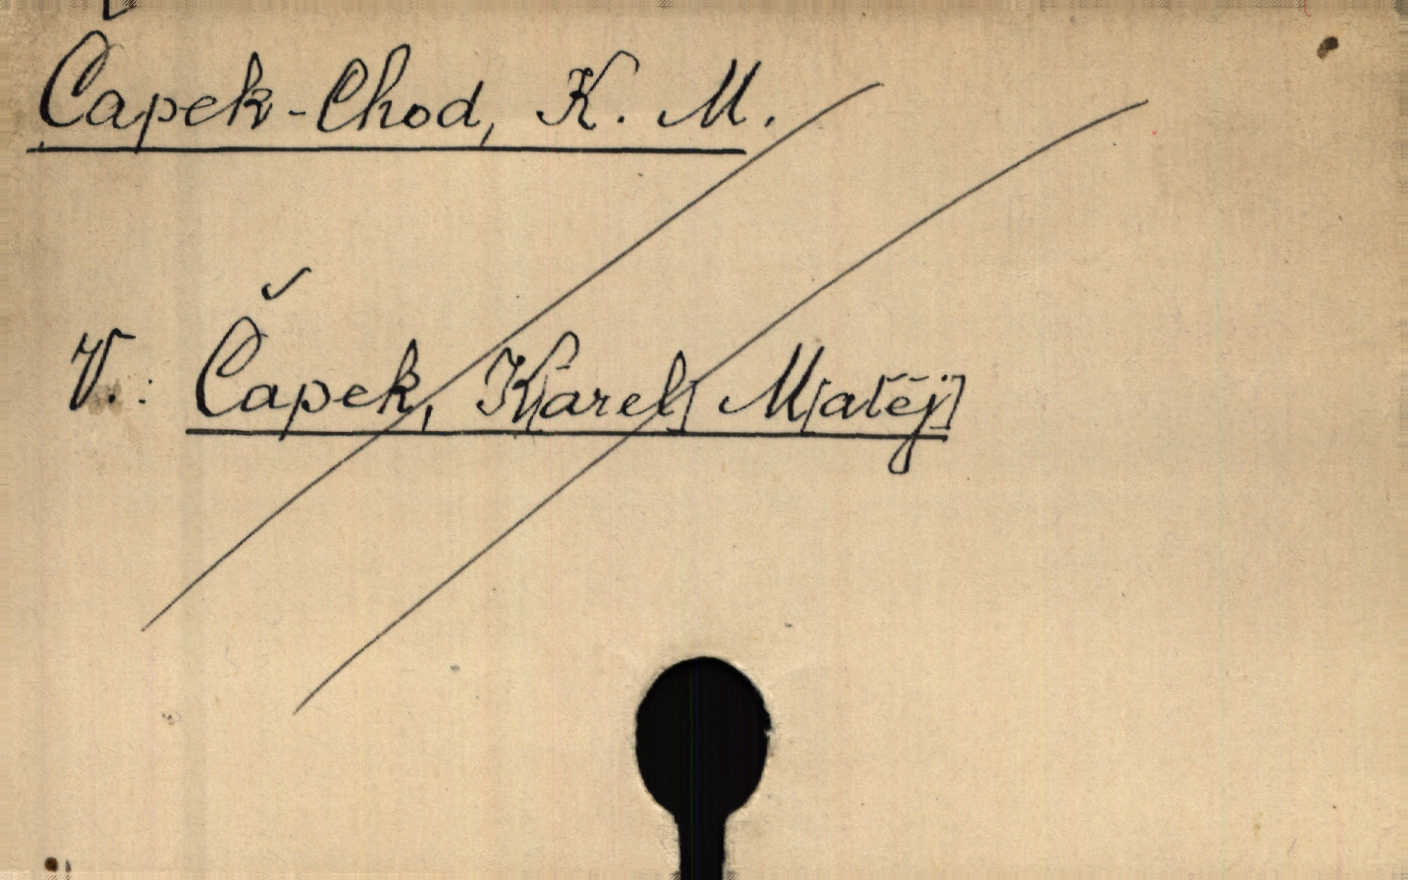 Čapek-Chod, K. M.
V.: Čapek, K[arel] M[atěj]